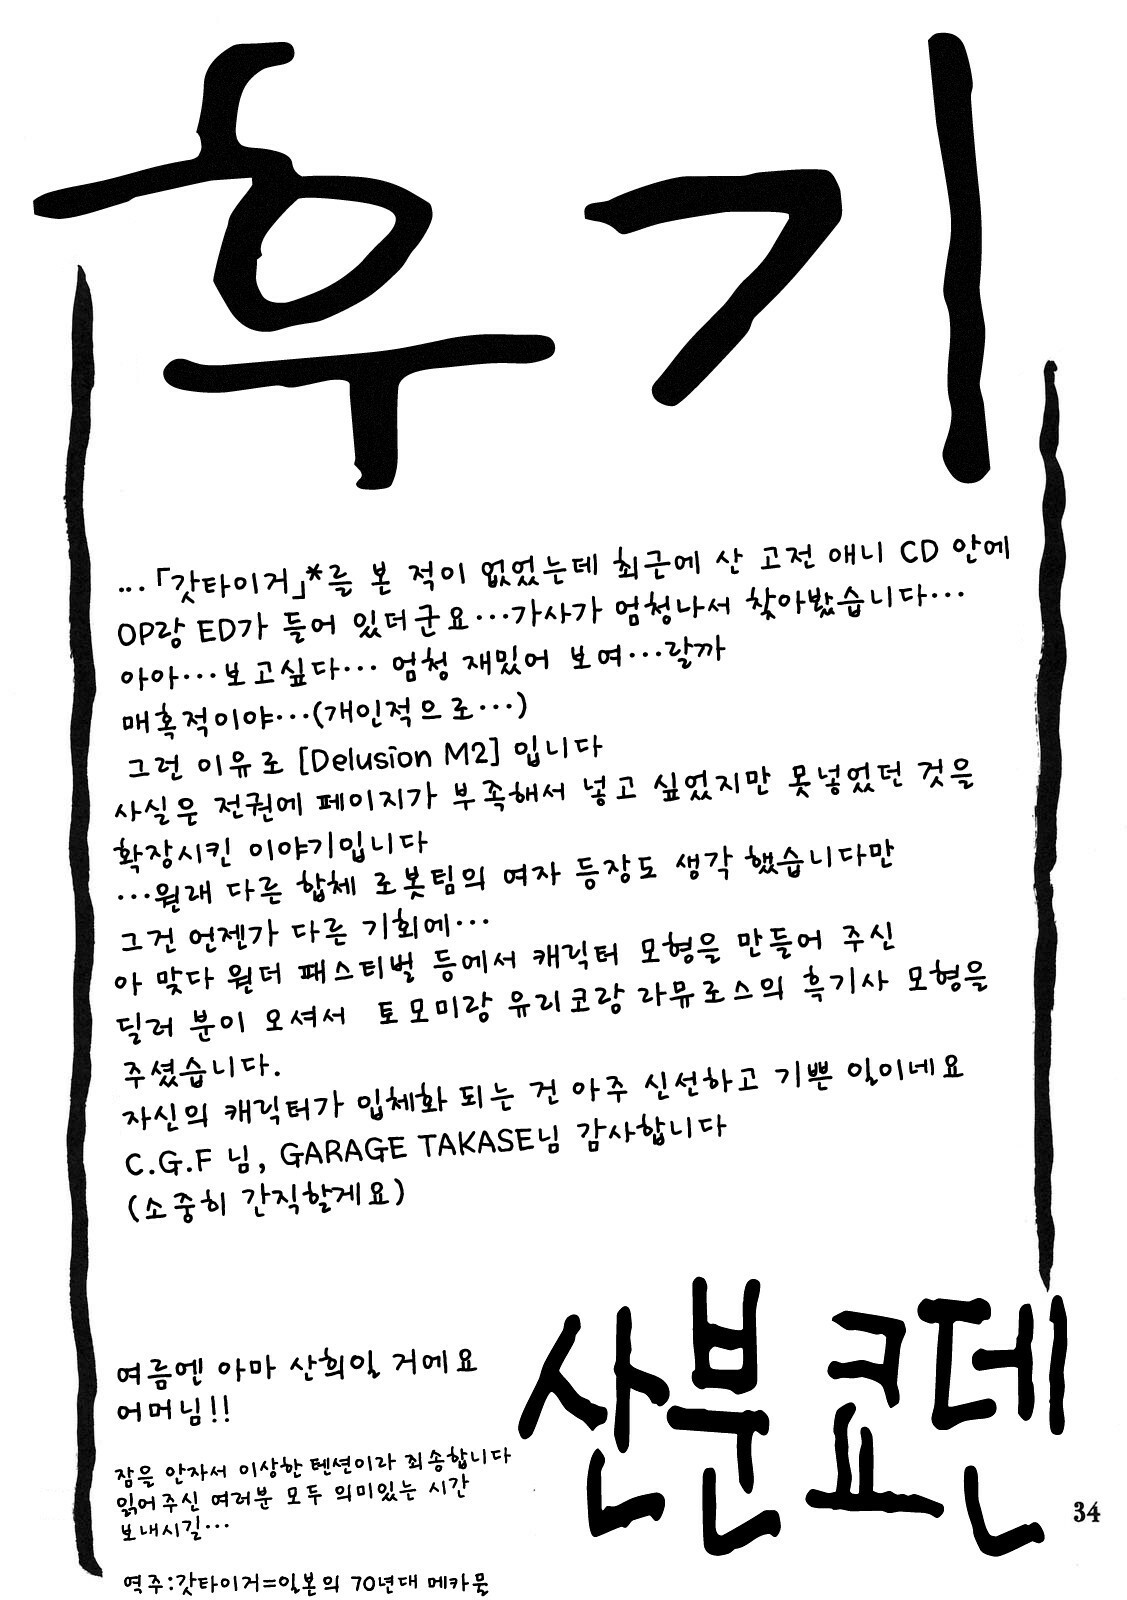 후기
...「갓타이거」*를 본 적이 없었는데 최근에 산 고전 애니 CD 안에
OP랑 ED가 들어 있더군요···가사가 엄청나서 찾아봤습니다···
아아···보고싶다··· 엄청 재밌어 보여···랄까
매혹적이야···(개인적으로···)
그런 이유로 [Delusion M2] 입니다
사실은 전권에 페이지가 부족해서 넣고 싶었지만 못넣었던 것을
확장시킨 이야기입니다
···원래 다른 합체 로봇팀의 여자 등장도 생각 했습니다만
그건 언젠가 다른 기회에···
아 맞다 원더 패스티벌 등에서 캐릭터 모형을 만들어 주신
딜러 분이 오셔서 토모미랑 유리코랑 라뮤로스의 흑기사 모형을
주셨습니다.
자신의 캐릭터가 입체화 되는 건 아주 신선하고 기쁜 일이네요
C.G.F 님, GARAGE TAKASE님 감사합니다
(소중히 간직할게요)
여름엔 아마 산희일 거에요
어머님!!
산분 쿄덴
잠을 안자서 이상한 텐션이라 죄송합니다
읽어주신 여러분 모두 의미있는 시간
보내시길···
역주:갓타이거=일본의 70년대 메카물
34